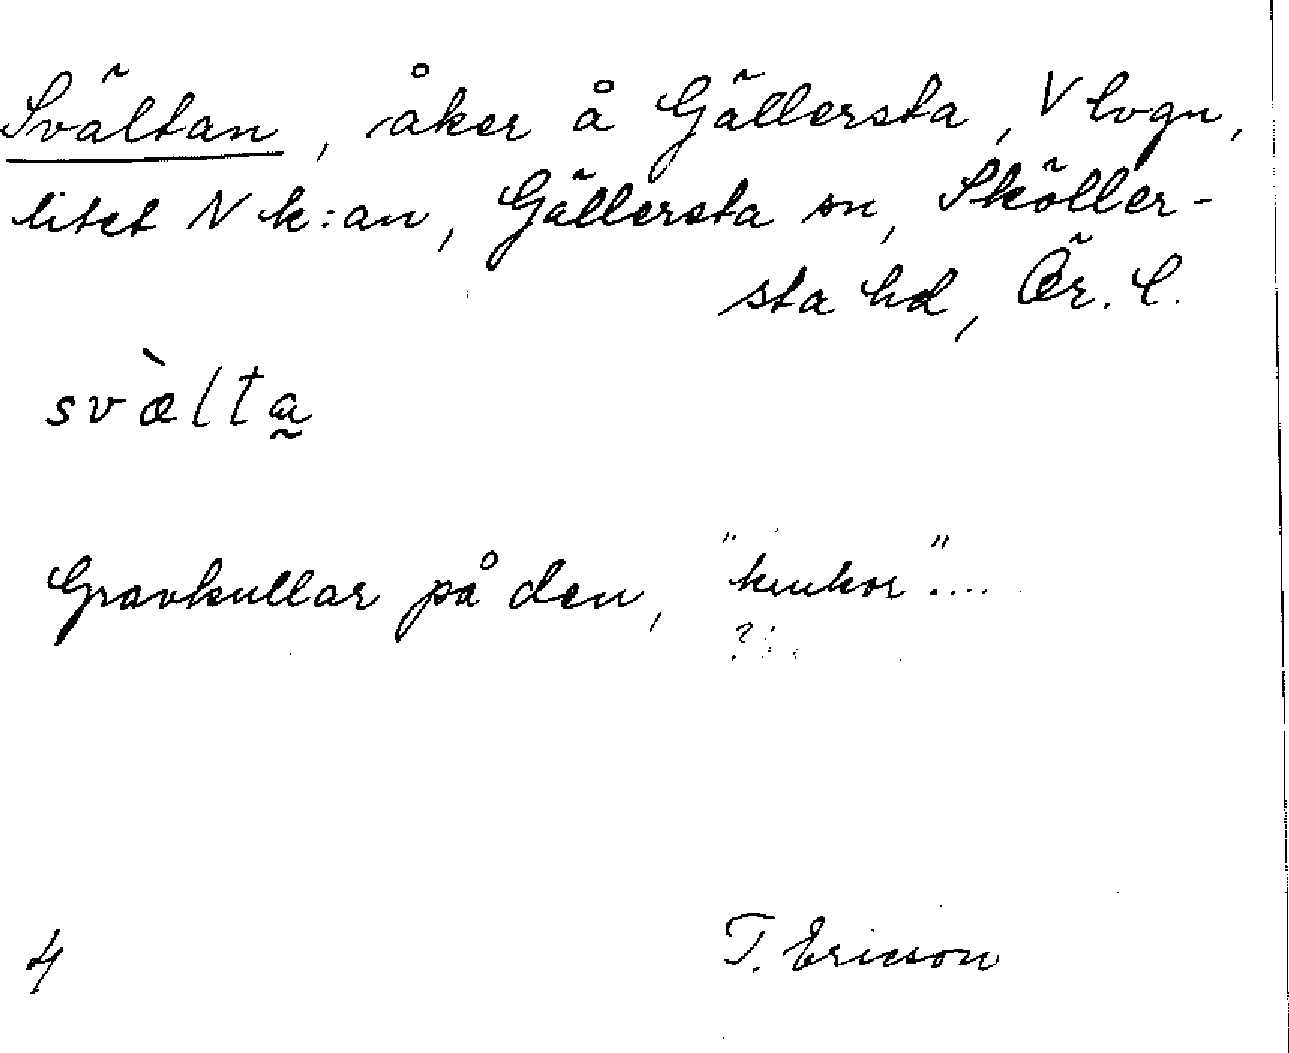 Svältan, åker å Gällersta, V lvgn,
litet N k:an, Gällersta sn, Sköller-
sta hd, Ör. l.
svὰlta
Gravkullar på den, "kukor"....
?
4
T. Ericson